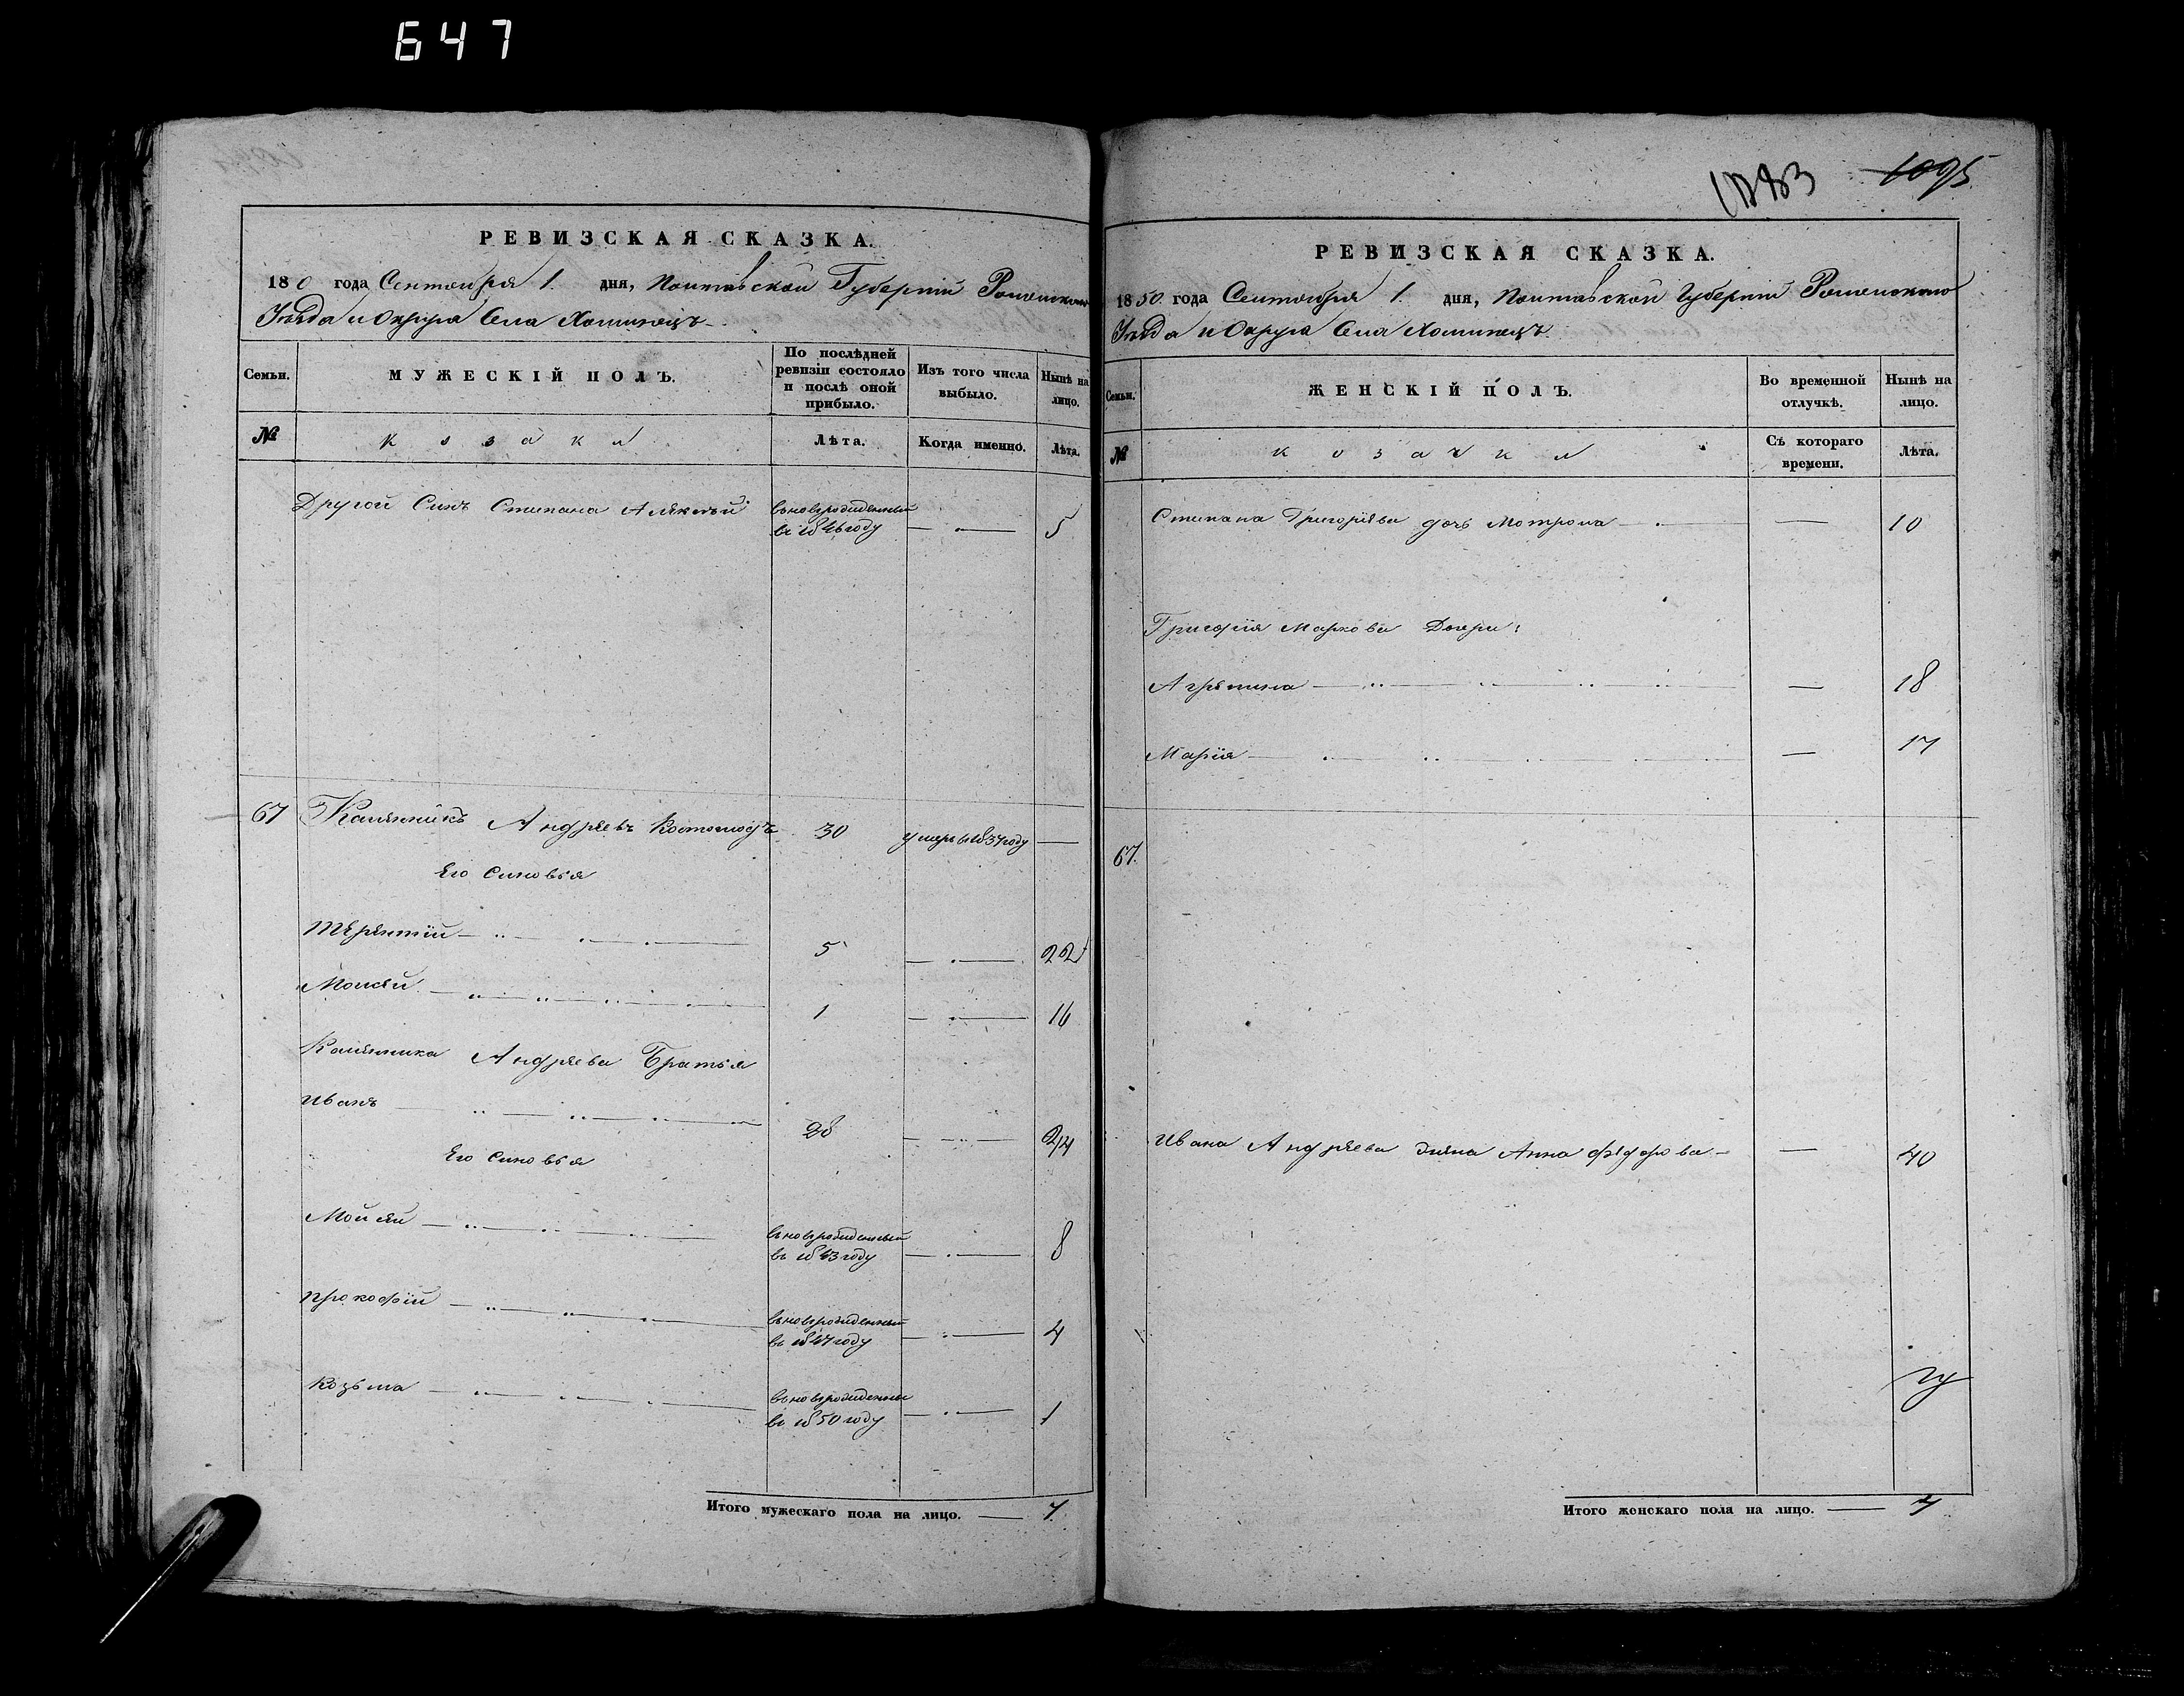 647
РЕВИЗСКАЯ СКАЗКА.
18 0 года Сентября 1. дня, Полтавской Губернии Роменского
Уезда и Округа Села Хоминецъ
Семьи.
МУЖЕСКІЙ ПОЛЪ.
По послѣдней ревизіи состояло и послѣ оной прибыло.
Изъ того числа выбыло.
Нынѣ на лицо.
№
козаки
Лѣта.
Когда именно.
Лѣта.
Другой Синъ Степана Алексѣй
вновърожденный
въ 1846 году
5
67 Калѣнникъ Андреевъ 30 умеръ въ 1837 году
Его Синовья
Терентий 5 22
Моисей 1 16
Каленика Андреева Братья
Иванъ 28 44
Его Синовья
Мойсей
вновърожденный
въ 1843 году
8
Прокофий
вновърожденный
въ 1847 году
4
Козьма
вновърожденный
въ 1850 году
1
Итого мужескаго пола на лицо. 7.
1095
РЕВИЗСКАЯ СКАЗКА.
1850. года Сентября 1. дня, Полтавской Губернии Роменского
Уезда и Округа Села Хоминецъ.
Семьи.
ЖЕНСКІЙ ПОЛЪ.
Во временной отлучкѣ.
Нынѣ на лицо.
№
козачки
Съ котораго времени.
Лѣта.
Степана Григорьева дочь Мотрона 10
Григория Маркова Дочери:
Агрепина 18
Мария 17
67.
Ивана Андреева жена Анна Федорова 40
Итого женскаго пола на лицо. 4